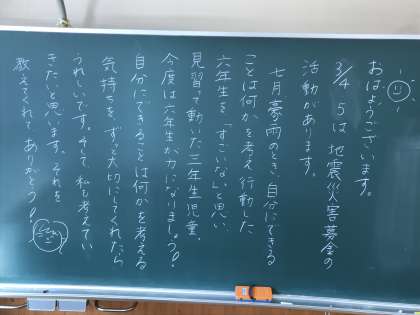 おはようございます。
3/4、5は地震災害募金の
活動があります。
七月豪雨のとき、自分にできる
ことは何かを考え行動した
六年生を「すごいな」と思い、
見習って動いた三年生児童。
今度は六年生が力になりましょう!
自分にできることは何かを考える
気持ちを、ずっと大切にしてくれたら
うれしいです。そして、私も考えてい
きたいと思います。それを
教えてくれて、ありがとう!